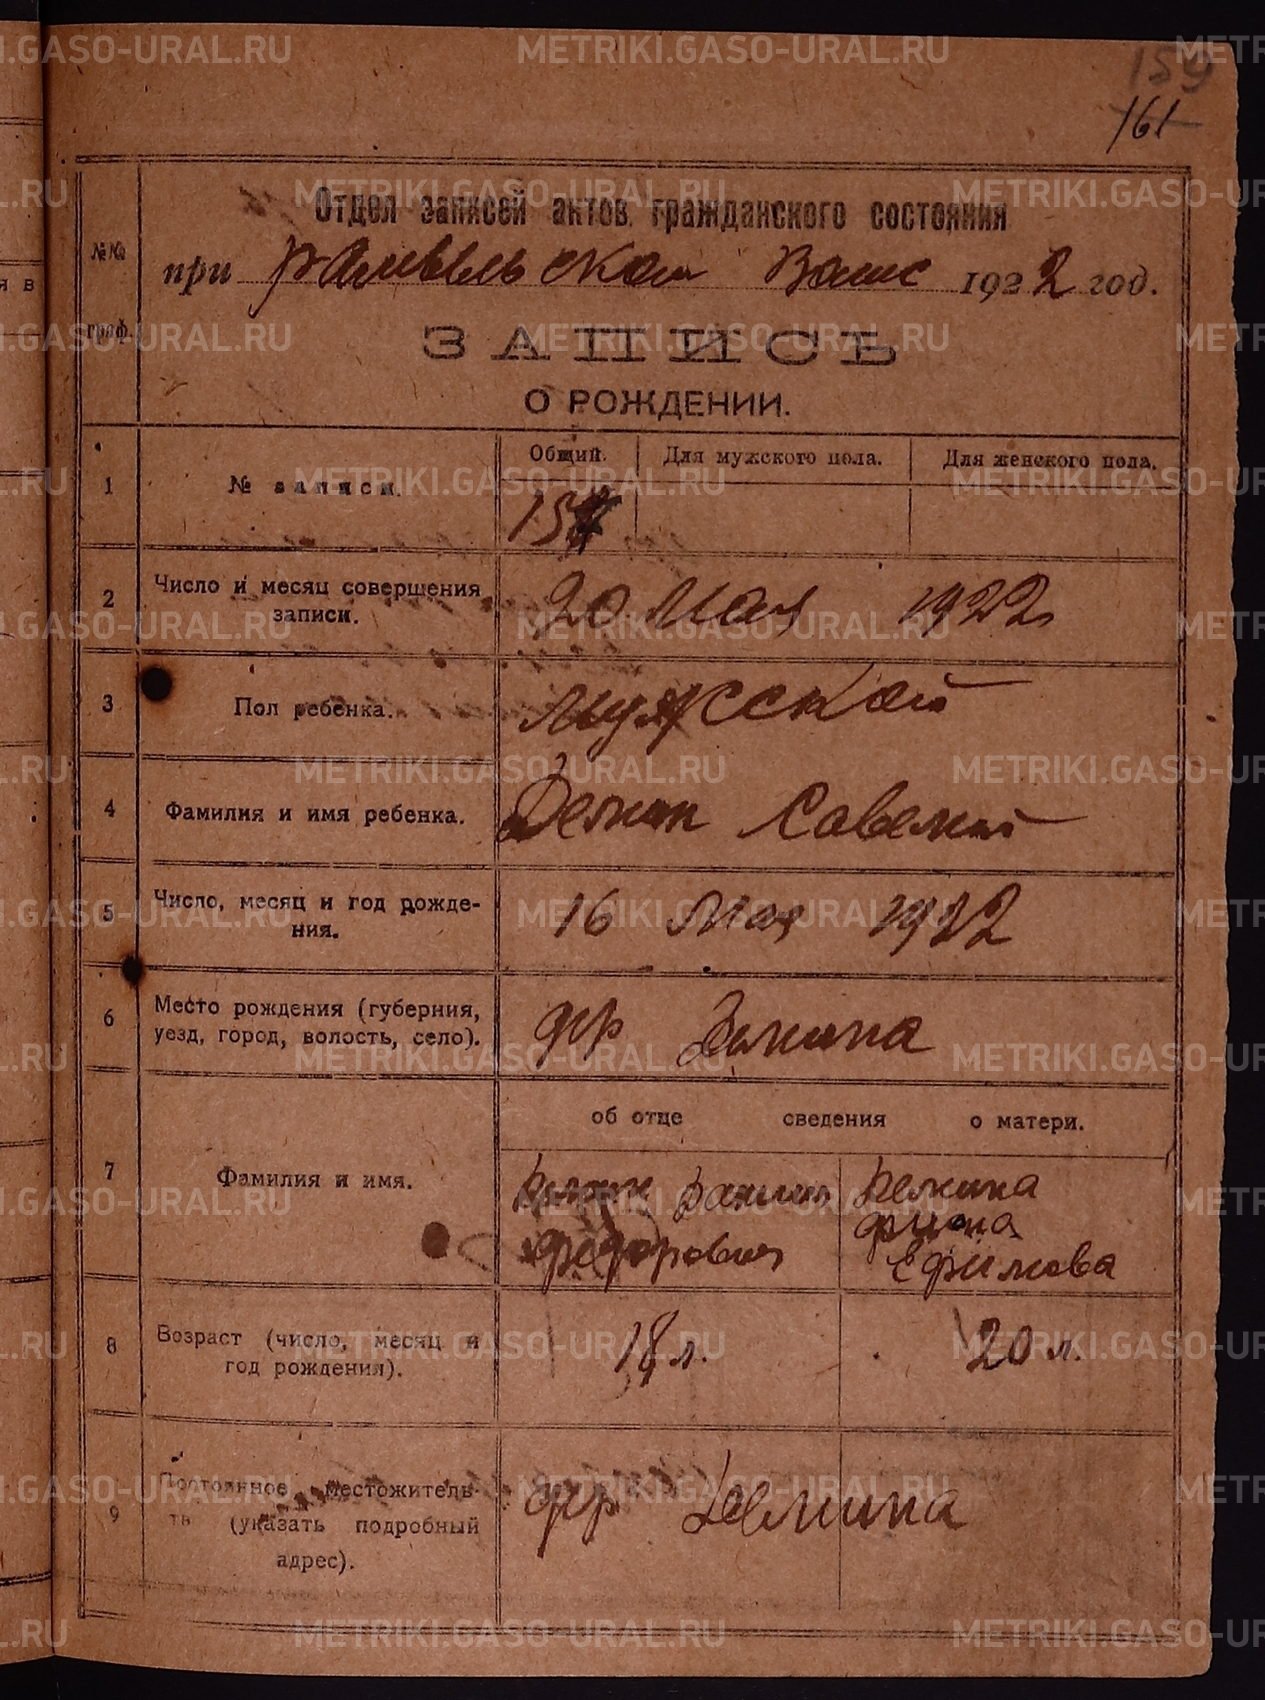 159
161
Отдел записей актов гражданского состояния
№№ граф.
при Волис 1922 год.
ЗАПИСЬ
О РОЖДЕНИИ.
1 № записи. Общий. Для мужского пола. Для женского пола.
2 Число и месяц совершения
записи.
20 Мая 1922
3 Пол ребенка. мужской
4 Фамилия и имя ребенка. Савелий
5 Число, месяц и год рожде-
ния.
16 Мая 1922
6 Место рождения (губерния,
уезд, город, волость, село).
дер
об отце сведения о матери.
7 Фамилия и имя.
Федорович
Ефимова
8 Возраст (число, месяц и
год рождения).
18 л. 20 л.
9 Постоянное местожитель-
(указать подробный
адрес).
дер
METRIKI.GASO-URAL.RU